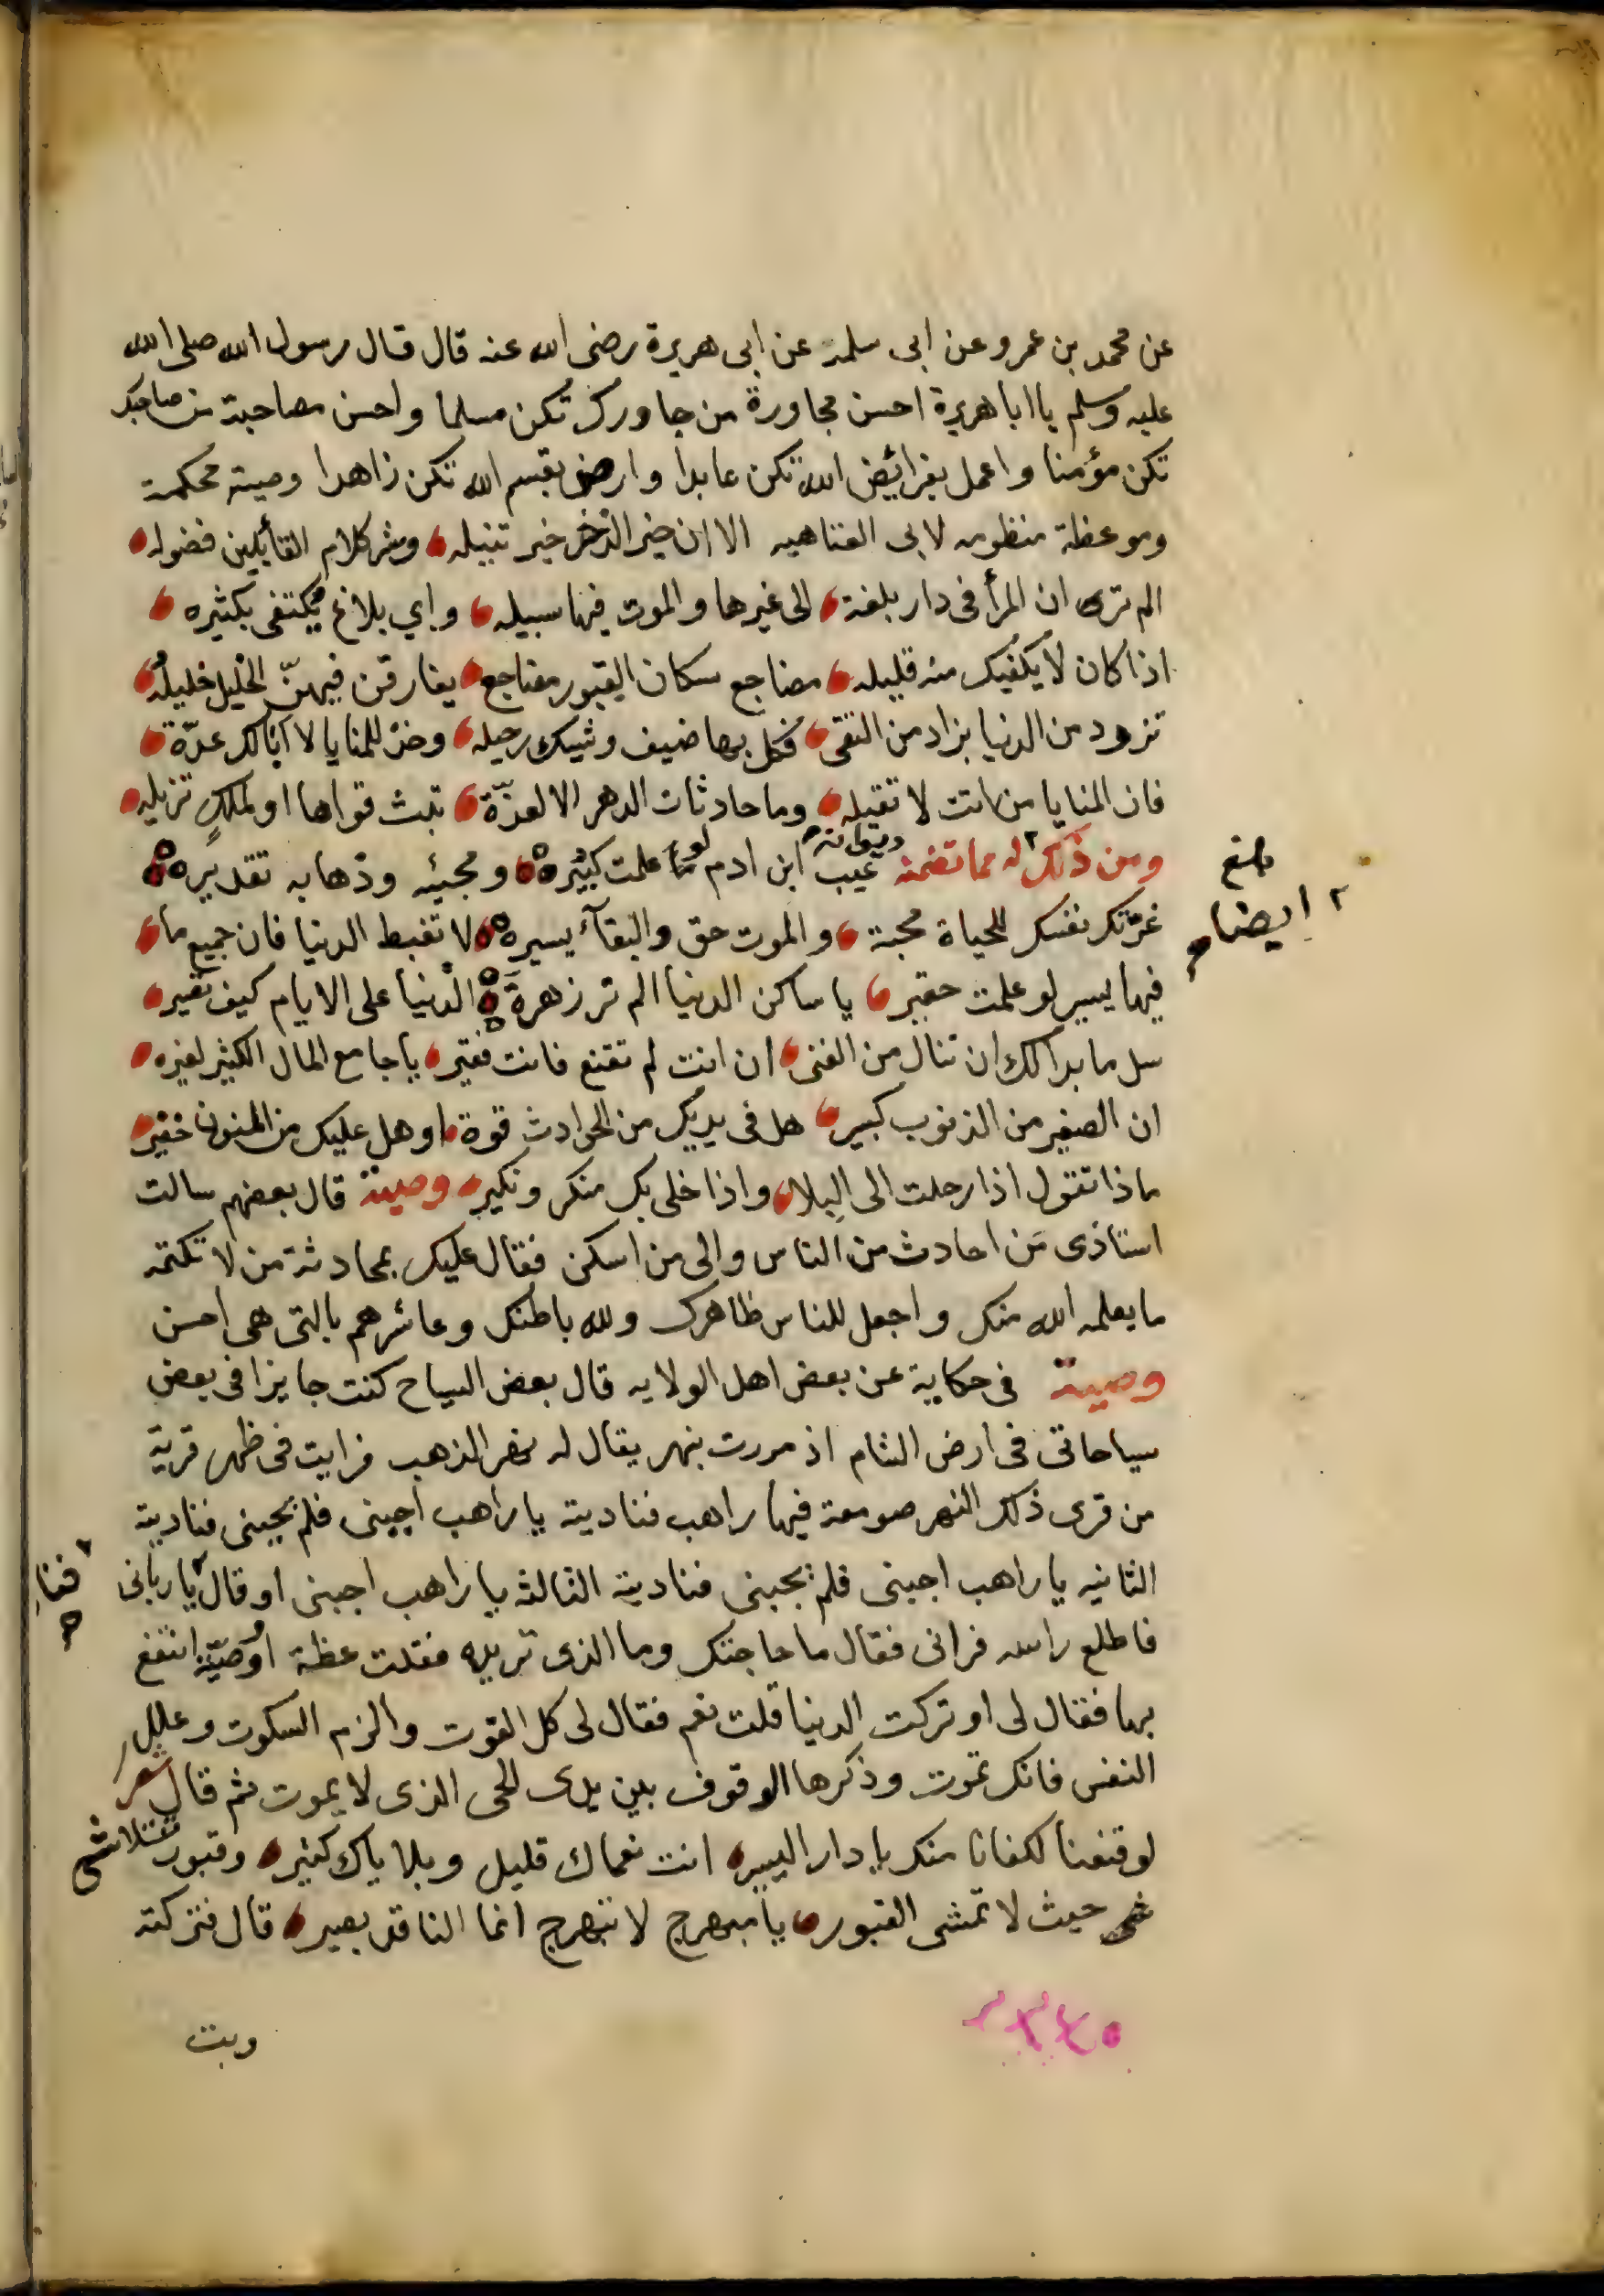 عن محمد بن عمرو عن ابى سلمة عن ابى هريرة رضى الله عنه قال قال رسول الله صلى الله
عليه وسلم يا ابا هريرة احسن مجاورة من جاورك تكن مسلما واحسن مصاحبة من صاحبك
تكن مؤمنا واعمل بفرائيض الله تكن عابدا وارض بقسم الله تكن زاهدا وصية محكمة
وموعظة منظومه لابى العتاهيه الا ان خير الذخر خير تنيله وشر كلام القائلين فضوله
الم ترى ان المرأ فى دار بلغة الى غيرها والموت فيها سبيله واي بلاغ يكتفى بكثيره
اذا كان لا يكفيك منه قليله مضاجع سكان القبور مضاجع يفارقن فيهنّ الخليل خليله
تزود من الدنيا بزاد من التقى فكل بها ضيف وشيك رحيله وخذ للمنايا لا ابالك عدّة
فان المنايا من اتت لا تقيله وما حادثات الدهر الا لعزّة تبث قواها او لملكٍ تزيله
ومن ذلك له مما تضمنه ديوانه عيب ابن ادم لو علمت كبيره ومجيئه وذهابه تقديره
بلغ
ايضا
غرّتك نفسك للحياة محبة والموت حق والبقآء يسيره لا تغبط الدنيا فان جميع ما
فيها يسير لو علمت حقير يا ساكن الدنيا الم تر زهرة الدنيا على الايام كيف تغير
سل ما بدا لك ان تنال من الغنى ان انت لم تقنع فانت فقير يا جامع المال الكثير لغيره
ان الصغير من الذنوب كبير هل فى يديك من الحوادث قوة او هل عليك من المنون خفير
ماذا تقول اذا رحلت الى البلا واذا خلى بك منكر ونكير وصية قال بعضهم سالت
استاذى مَن احادث من الناس والى من اسكن فقال عليك بمحادثة من لا تكتمه
ما يعلمه الله منك واجعل للناس ظاهرك ولله باطنك وعاشرهم بالتى هى احسن
وصية فى حكاية عن بعض اهل الولايه قال بعض السياح كنت جايزا فى بعض
سياحاتى فى ارض الشام اذ مررت بنهر يقال له نهر الذهب فرايت فى ظهر قرية
من قرى ذلك النهر صومعة فيها راهب فناديته يا راهب اجبنى فلم يجبنى فناديته
الثانيه يا راهب اجبنى فلم يجبنى فناديته الثالثه يا راهب اجبنى او قال يا ربانى
فاطلع راسه فرانى فقال ما حاجتك وما الذى تريده فقلت عظة او وصيّة انتفع
بها فقال لى او تركت الدنيا قلت نعم فقال لى كل القوت والزم السكوت وعلل
النفس فانك تموت وذكرها الوقوف بين يدى الحى الذى لا يموت ثم قال شعر
لو قنعنا لكفانا منك يا دار اليسير انت نعماك قليل وبلاياك كثير وقبور تتلاشى
حيث لا تمشى القبور يا مبهرج لا تبهرج انما الناقد بصير قال فتركته
وبت